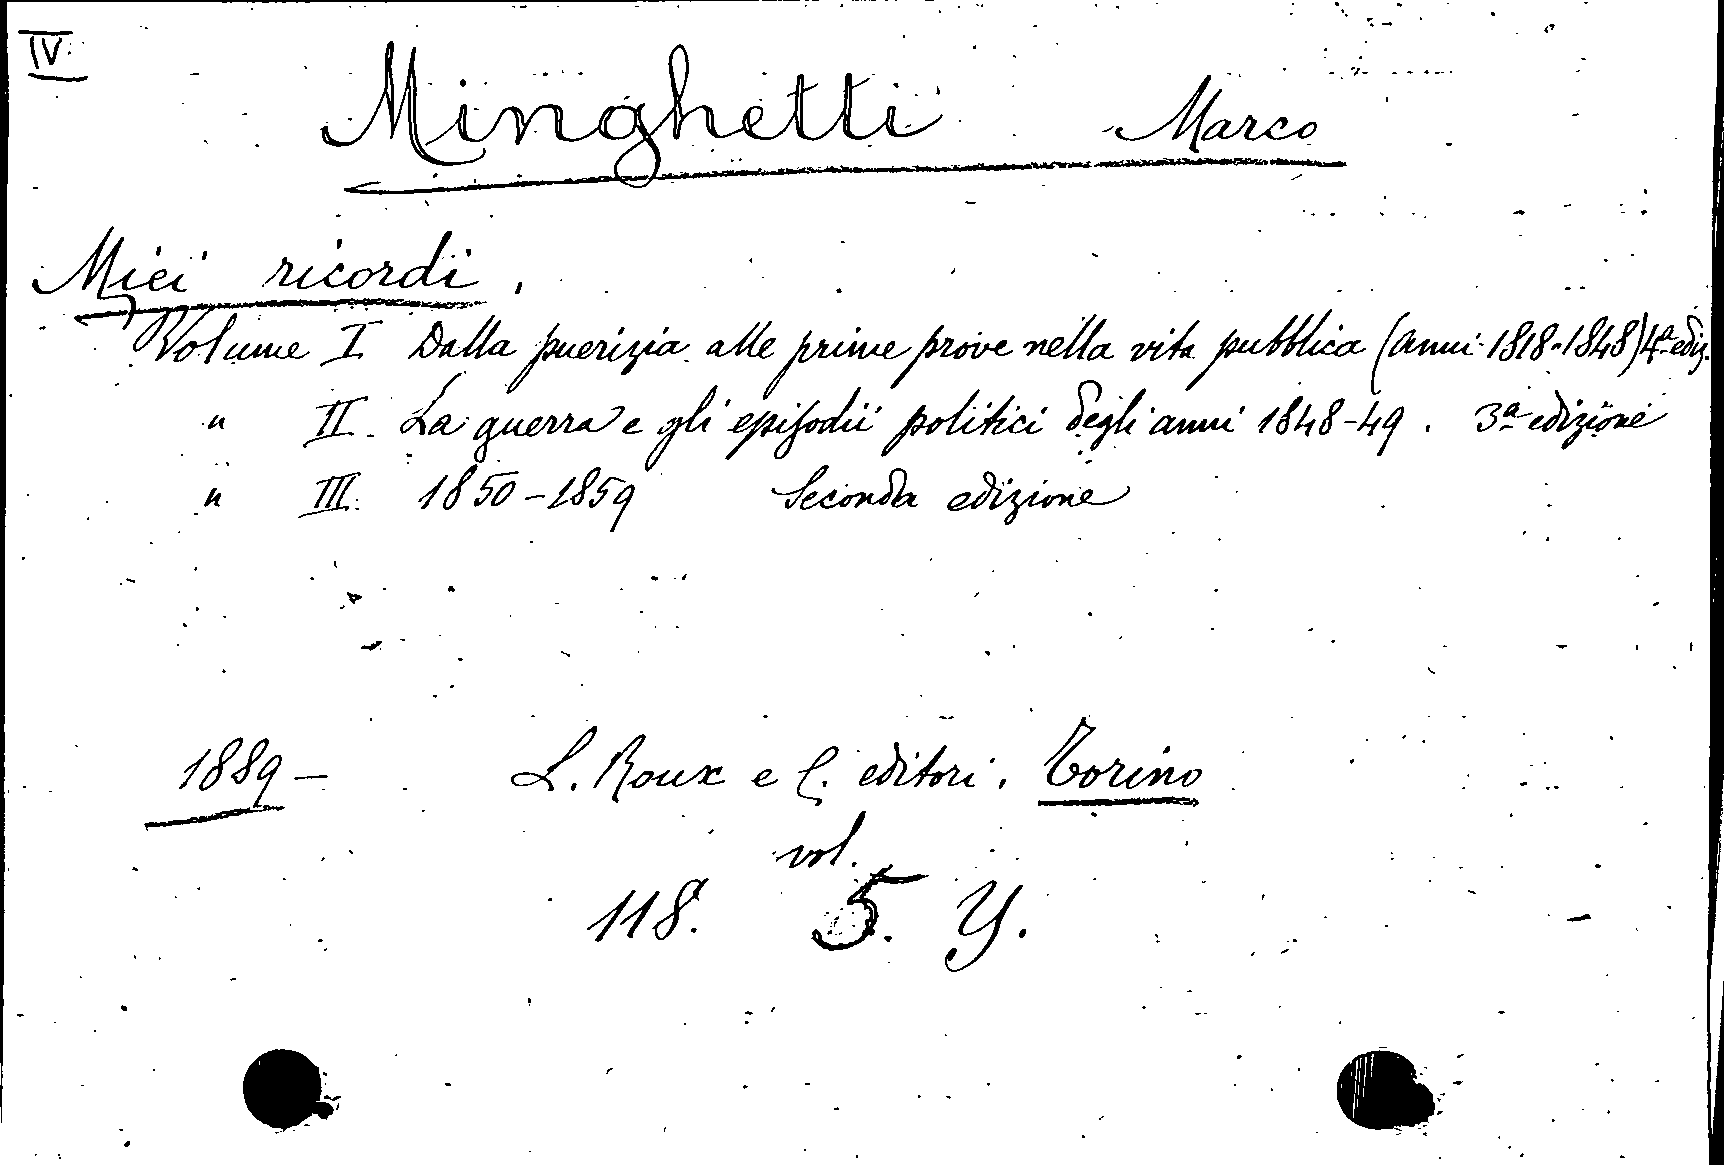 IV.
Minghetti Marco
Miei ricordi.
Volume I Dalla puerizia alle prime prove nella vita pubblica (anni 1818-1848) 4ª ediz.
" II. La guerra e gli episodii politici degli anni 1848-49. 3ª edizione
" III. 1850-1859 Seconda edizione
1889- L. Roux e C. editori. Torino
vol.
118. 5. Y.